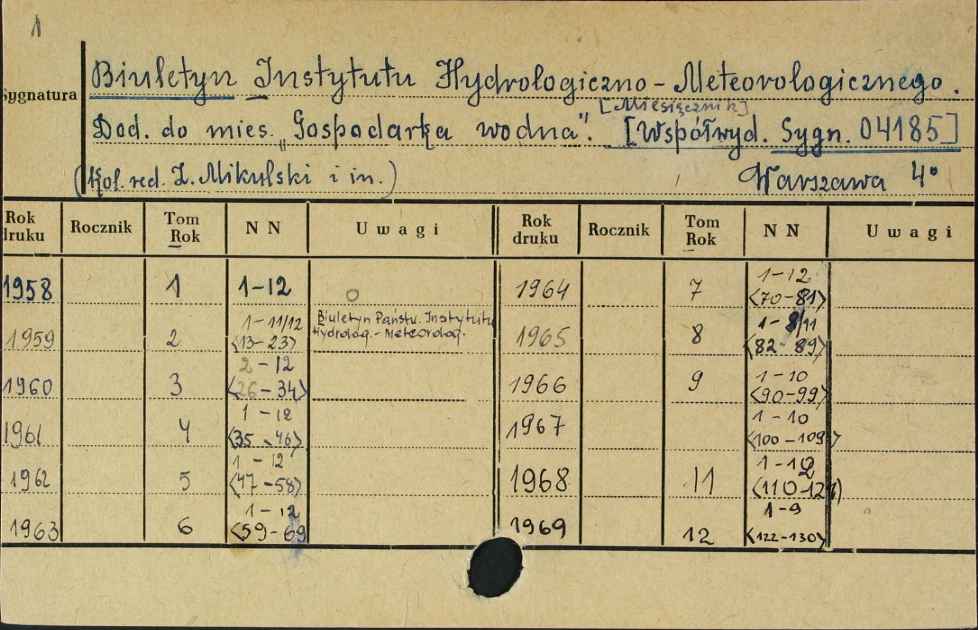 1
Sygnatura
Biuletyn Instytutu Hydrologiczno-Meteorologicznego.
[Miesięcznik]
Dod. do mies. "Gospodarka wodna". [Współwyd. Sygn. 04185]
(Kol. red. Z. Mikulski i in.)
Warszawa 4°
Rok druku Rocznik Tom Rok NN Uwagi Rok druku Rocznik Tom Rok NN Uwagi
1958 1 1-12 1964 7 1-12 <70-81>
1959 2 1-11/12 <13-23> Biuletyn Państw. Instytutu Hydrolog.-Meteorolog. 1965 8 1-8/11 <82-89>
1960 3 2-12 <26-34> 1966 9 1-10 <90-99>
1961 4 1-12 <35-46> 1967 1-10 <100-109>
1962 5 1-12 <47-58> 1968 11 1-12 <110-121>
1963 6 1-12 <59-69 1969 12 1-9 <122-130>